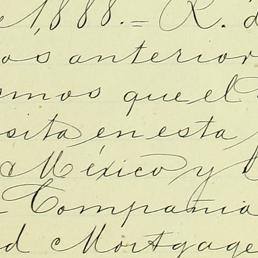 e 1,888.= R. d
os anterior
emos que el
sita en esta
México y L
Compania
d Mortgage